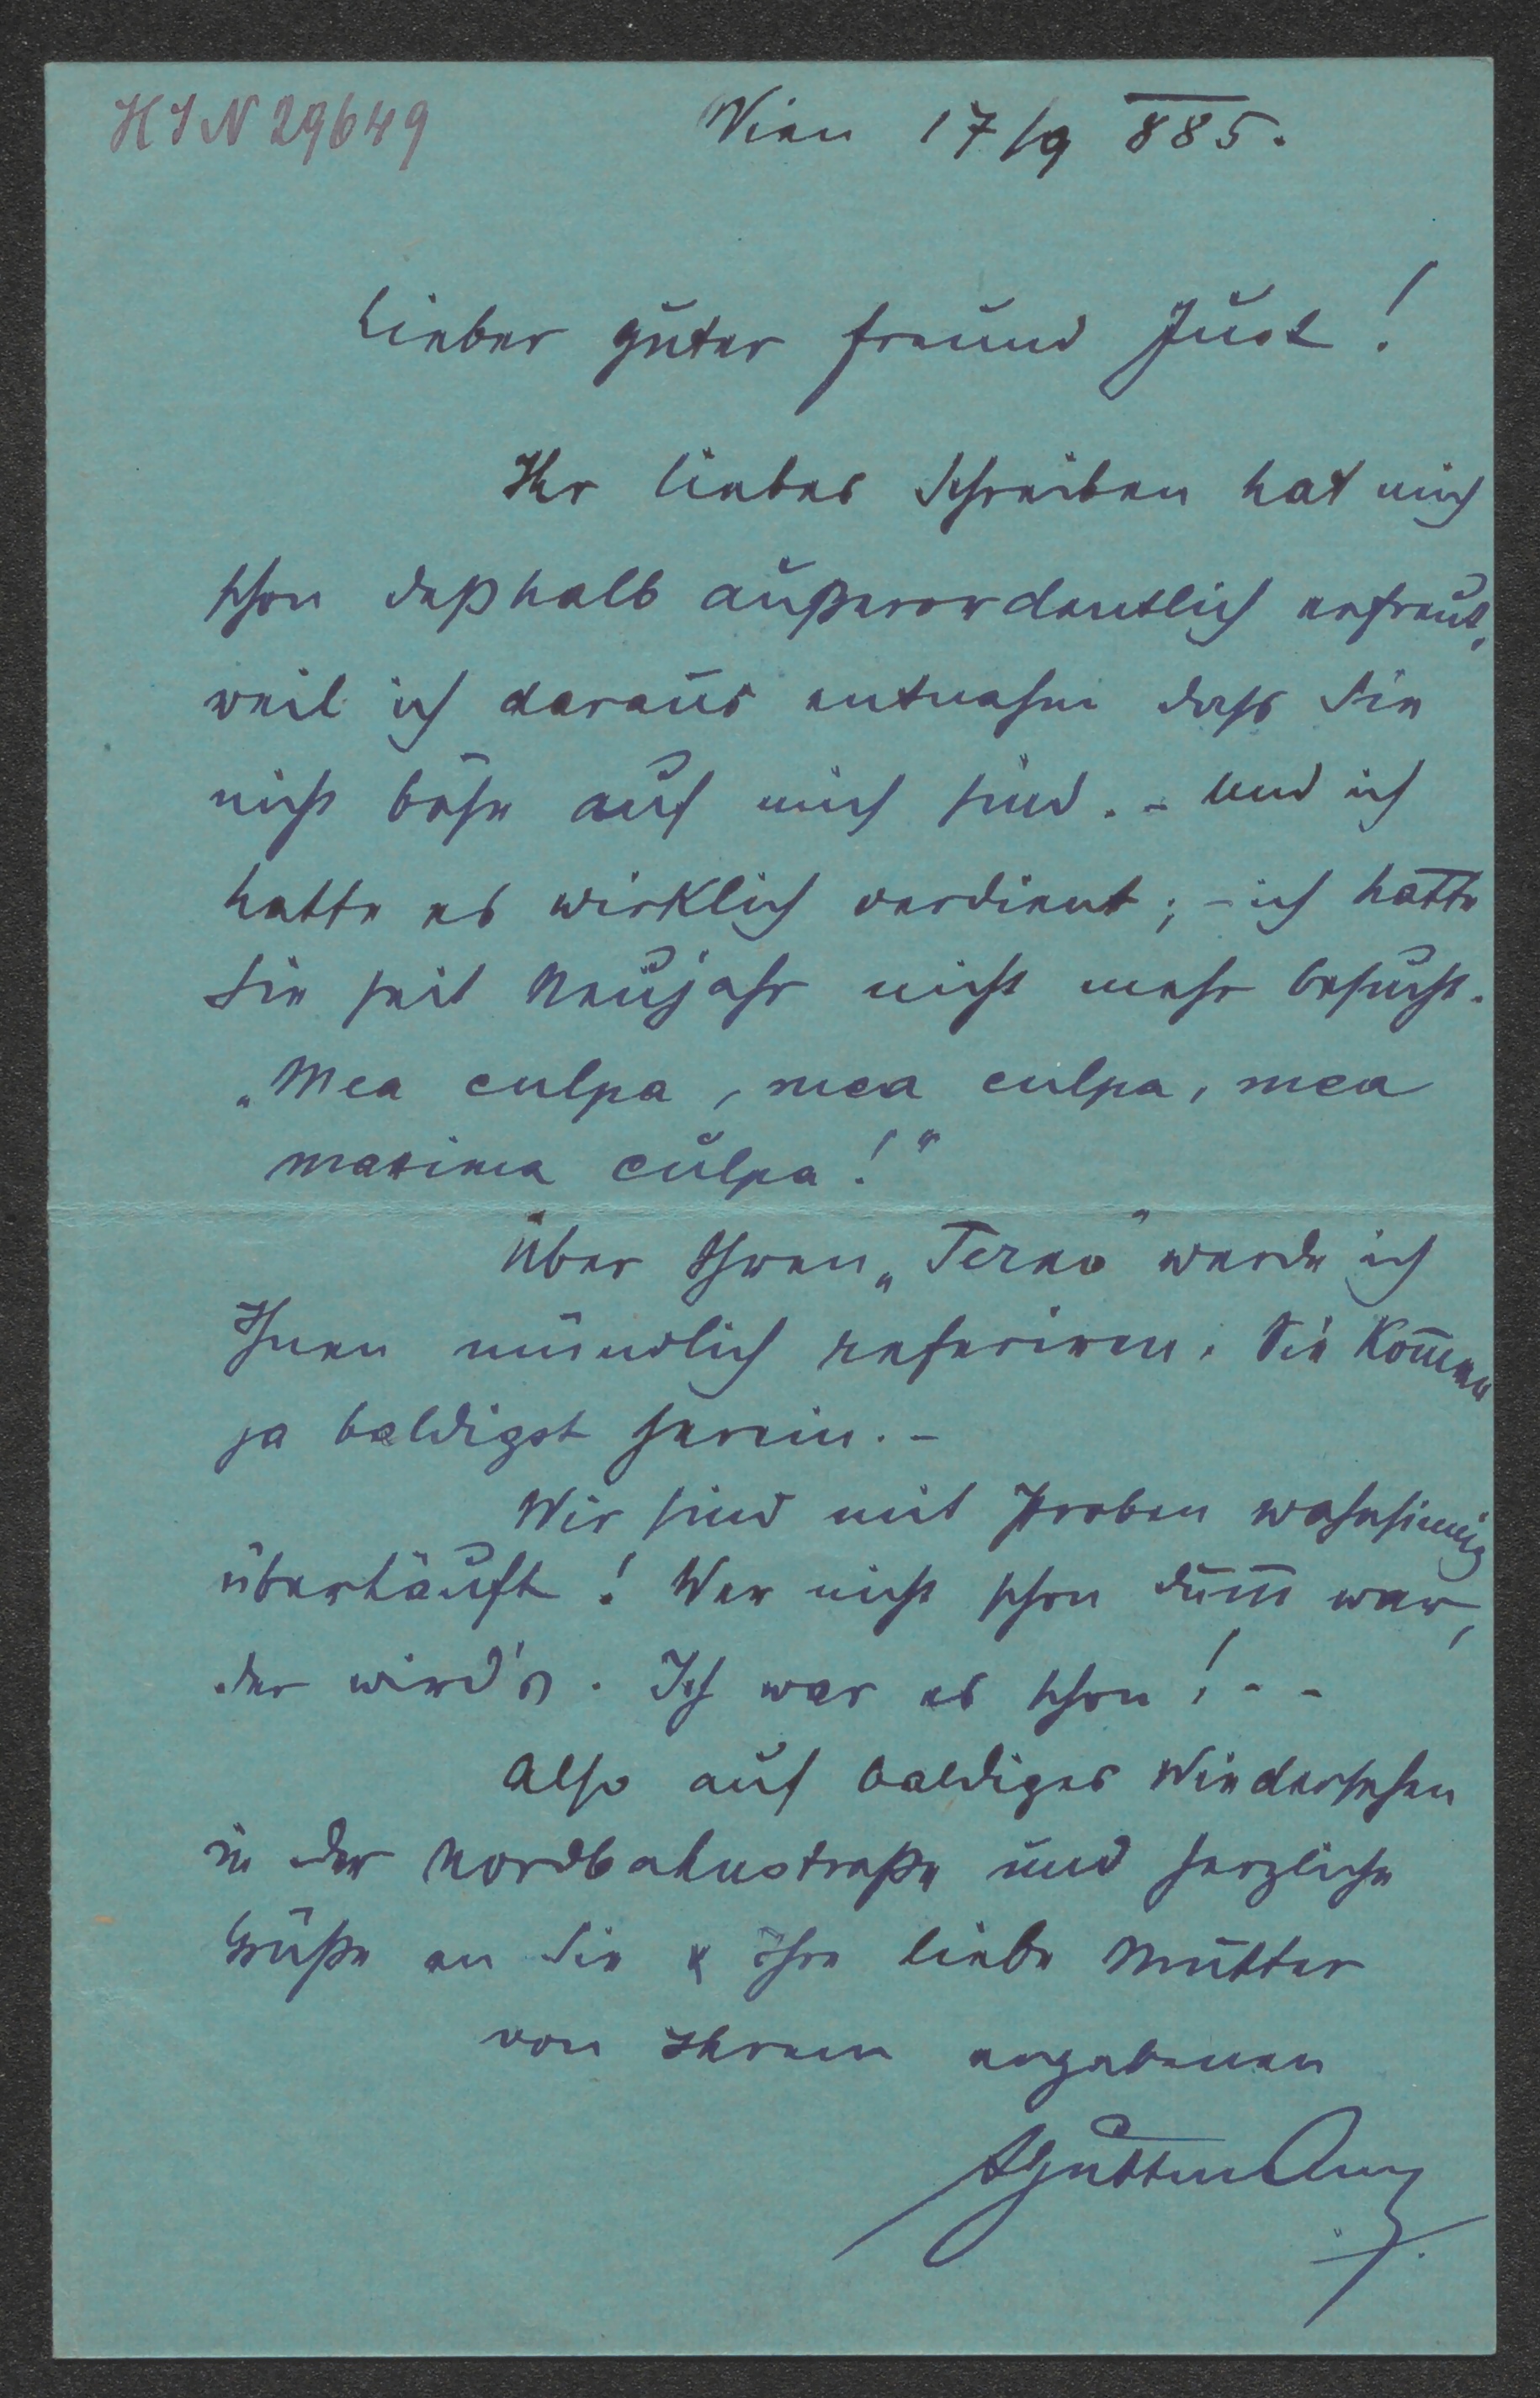 HIN 29649
Wien 17/9 885.
Lieber guter Freund Just!
Ihr liebes Schreiben hat mich
schon deßhalb außerordentlich erfreut,
weil ich daraus entnahm dass Sie
nicht böse auf mich sind. – Und ich
hatte es wirklich verdient; – ich hatte
Sie seit Neujahr nicht mehr besucht.
„Mea culpa, mea culpa, mea
maxima culpa!"
Über Ihren „Terno" werde ich
Ihnen mündlich referiren. Sie kom̄en
ja baldigst herein. –
Wir sind mit Proben wahnsinnig
überhäuft! Wer nicht schon dum̄ war,
der wird's. Ich war es schon! – –
Also auf baldiges Wiedersehen
in der Nordbahnstraße und herzliche
Grüße an Sie & Ihre liebe Mutter
von Ihrem ergebenen
AGuttmann